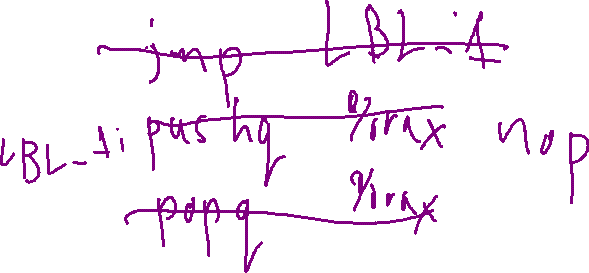 jmp LBL_1
LBL_1: pushq %rax nop
popq %rax